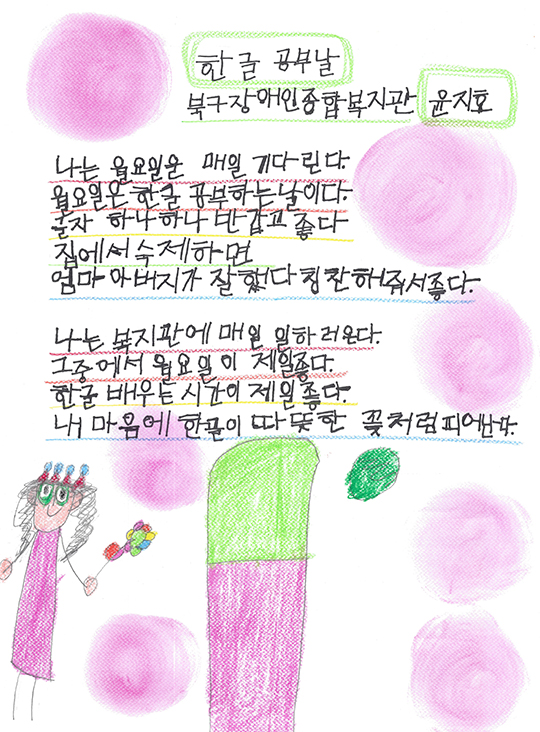 한글 공부날
북구장애인종합복지관 윤지호
나는 월요일은 매일 기다린다.
월요일은 한글 공부하는날이다.
글자 하나하나 반갑고 좋다
집에서 숙제하면
엄마 아버지가 잘했다 칭찬해줘서좋다.
나는 복지관에 매일 일하러온다.
그중에서 월요일이 제일좋다.
한글 배우는 시간이 제일 좋다.
내 마음에 한글이 따뜻한 꽃처럼피어난다.